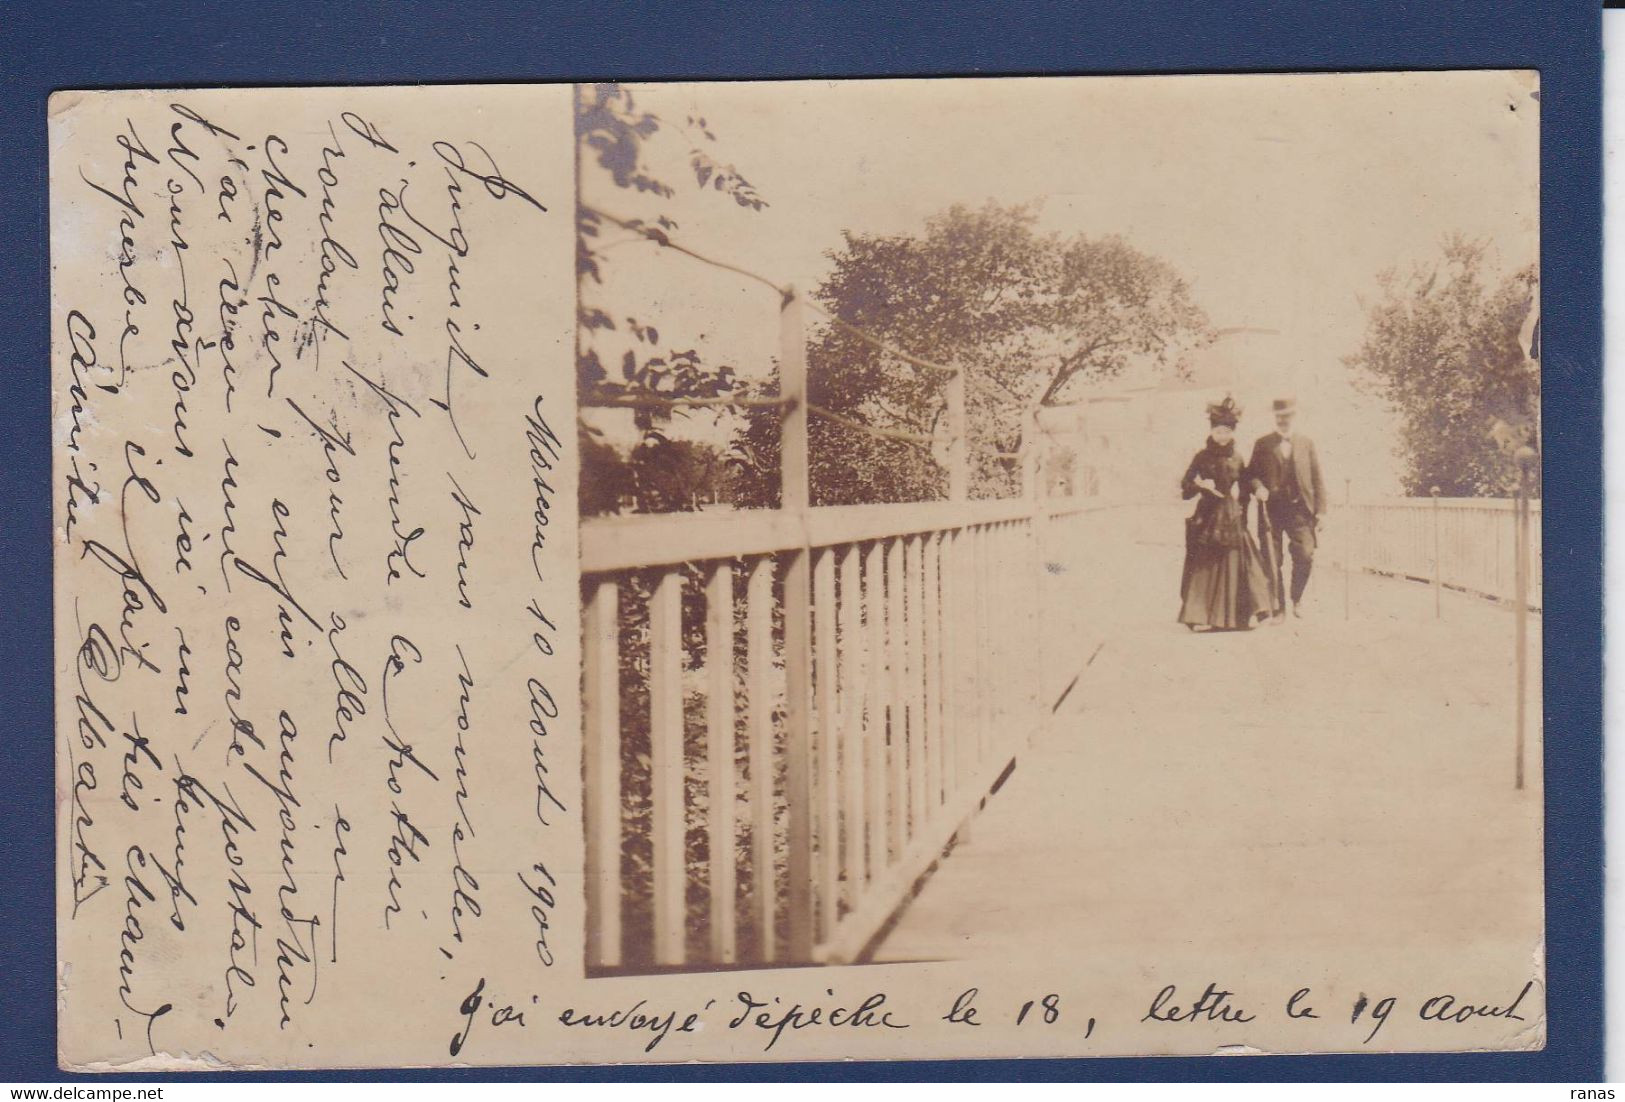 Moscou 10 Aout 1900
Inquiet, sans nouvelles,
j'allais prendre le trottoir
roulant pour aller en
chercher, enfin aujourd'hui
j'ai reçu une carte postale,
Nous avons ici un temps
superbe il fait très chaud_
Amitié
J'ai envoyé dépèche le 18, lettre le 19 Aout
ranas